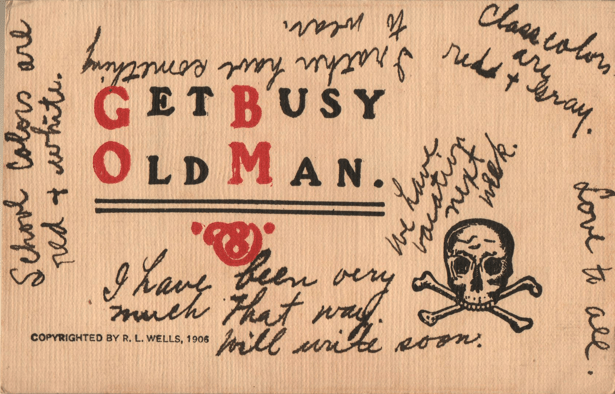 I rather have something
to wear.
Class colors
are
red + gray.
School Colors are
red + white.
GET BUSY
OLD MAN.
We have
vacation
next
week.
I have been very
much that way.
Will write soon.
Love to all.
COPYRIGHTED BY R. L. WELLS, 1906